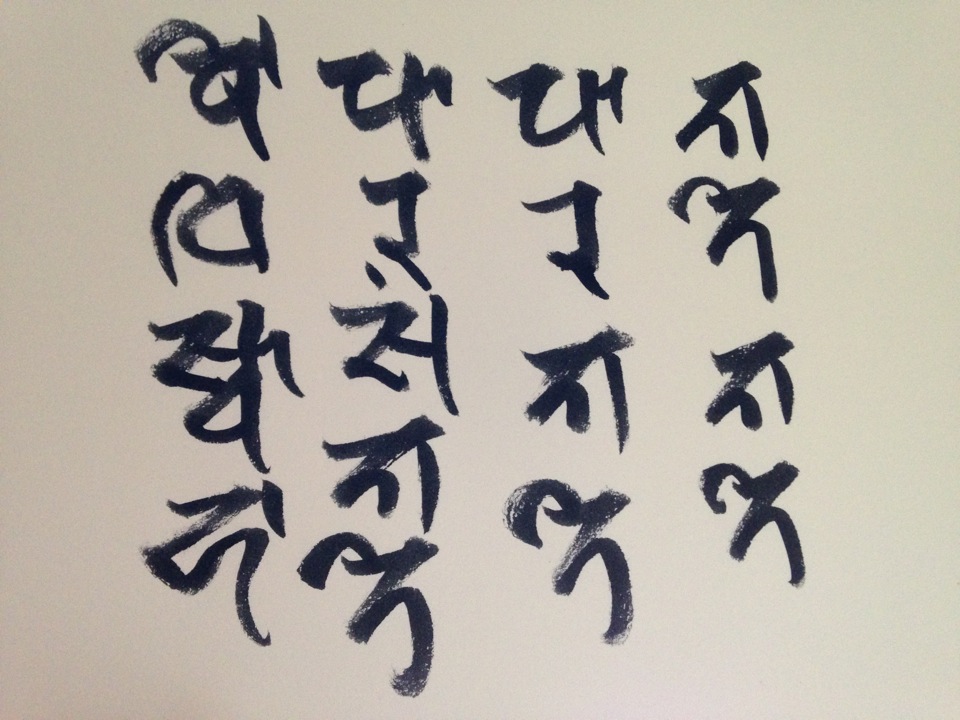 𑖐𑖝𑖸𑖐𑖝𑖸
𑖢𑖯𑖨𑖐𑖝𑖸
𑖢𑖯𑖨𑖭𑖽𑖐𑖝𑖸
𑖤𑖺𑖠𑖰𑖭𑖿𑖪𑖯𑖮𑖯